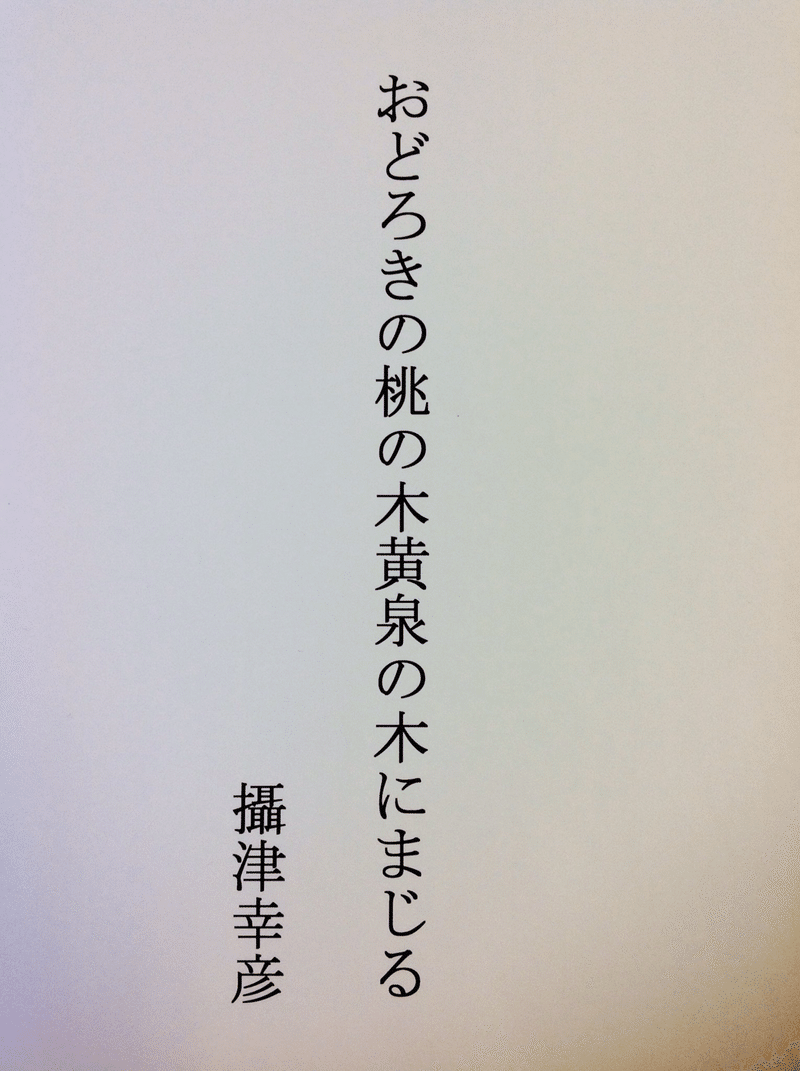 おどろきの桃の木黄泉の木にまじる
攝津幸彦